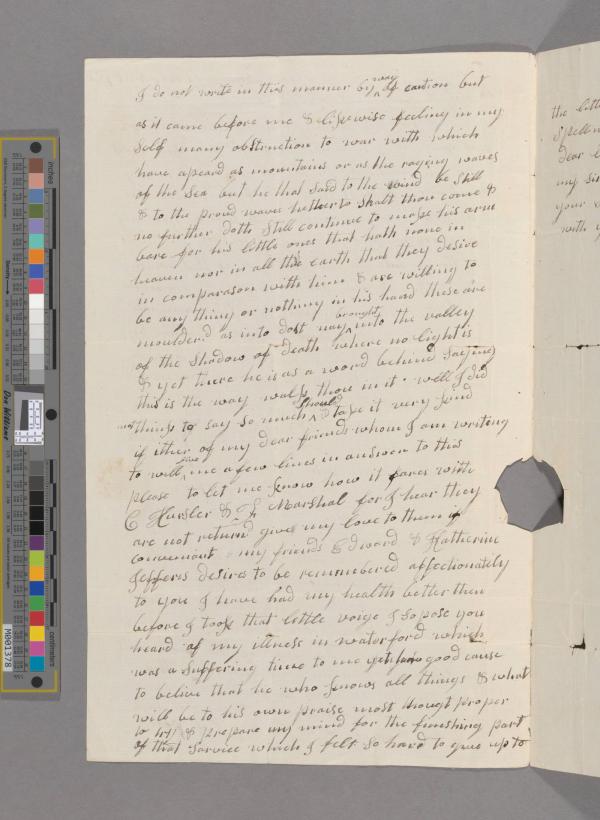 I do not write in this manner by way of caution but
as it came before me & likewise feeling in my
self many obstruction to war with which
have apeard as mountains or as the raging waves
of the sea but he that said to the wind be still
& to the proud wave hetherto shalt thou come &
no further doth still continue to make his arm
bare for his little ones that hath none in
heaven nor in all the earth that they desire
in comparason with him & are willing to
be any thing or nothing in his hand these are
moulder.d as into dost nay brought into the valley
of the shadow of death where no light is
& yet there he is as a word behind saying
this is the way walk thou in it . well I did
not things to say so much should take it very kind
if ither of my dear friends whom I am writing
to will give me a few lines in answer to this
please to let me know how it fares with
C Husler & Marshal for I hear they
are not return give my love to them if
convenant my friends Edward & Katherine
Jefferss desires to be remembered affectionately
to you I have had my health better then
before I took that little voige I sopose you
heard of my illness in waterford which
was a suffering time to me good cause
to belive that he who knows all things & what
will be to his own praise most thougt proper
to try & prepare my mind for the finishing part
of that sarvice which I felt so hard to give up to
the lit
spell
dear
my si
your
with y
inches
centimeters
Don Williams
M001378